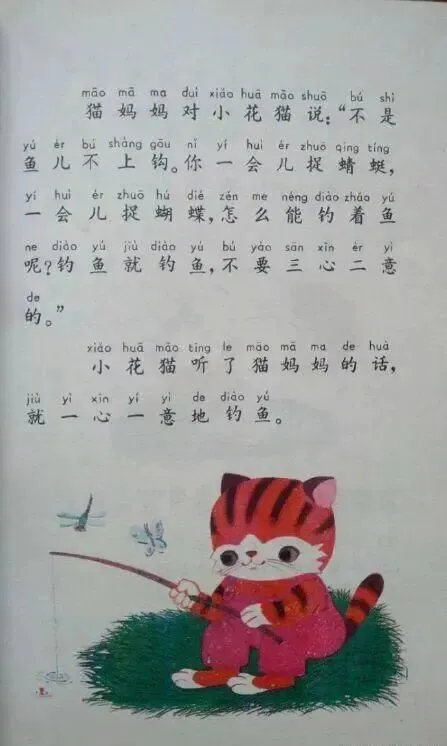 māo mā ma duì xiǎo huā māo shuō bú shì
猫妈妈对小花猫说：“不是
yú ér bú shàng gōu nǐ yí huì ér zhuō qīng tíng
鱼儿不上钩。你一会儿捉蜻蜓，
yí huì ér zhuō hú dié zěn me néng diào zháo yú
一会儿捉蝴蝶，怎么能钓着鱼
ne diào yú jiù diào yú bú yào sān xīn èr yì
呢？钓鱼就钓鱼，不要三心二意
de
的。”
xiǎo huā māo tīng le māo mā ma de huà
小花猫听了猫妈妈的话，
jiù yì xīn yí yì de diào yú
就一心一意地钓鱼。